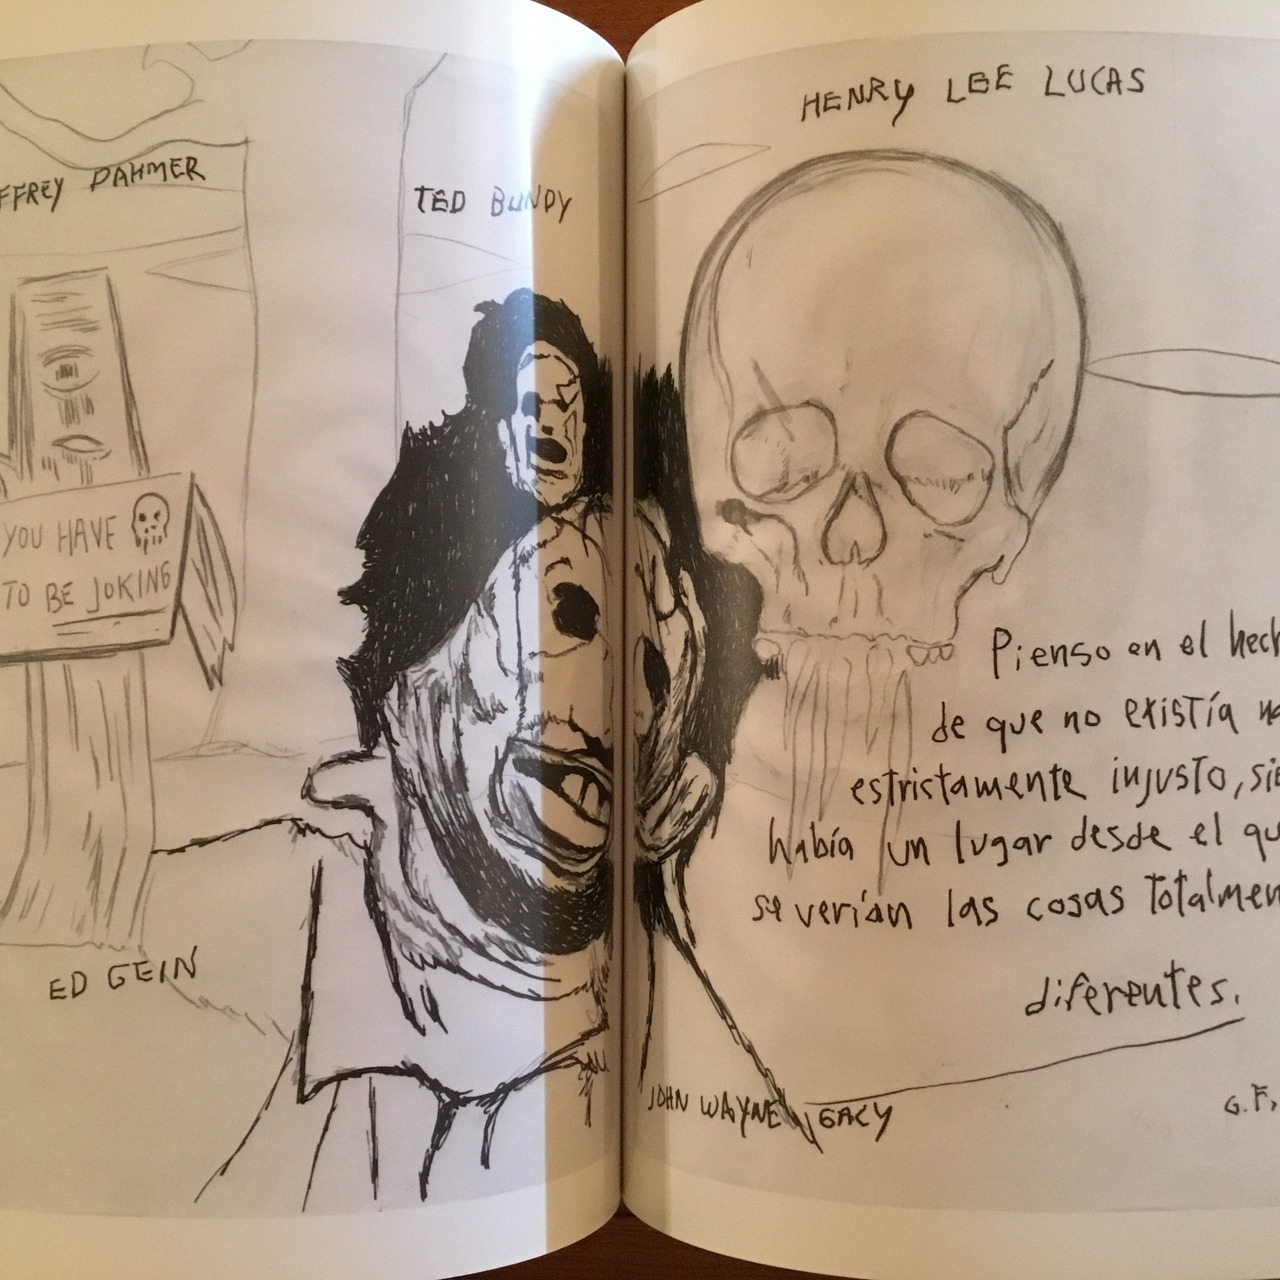 FFREY DAHMER
TED BUNDY
YOU HAVE
TO BE JOKING
ED GEIN
HENRY LEE LUCAS
Pienso en el hech
de que no existía na
estrictamente injusto, sie
había un lugar desde el qu
se verían las cosas totalmen
diferentes.
JOHN WAYNE GACY
G.F.